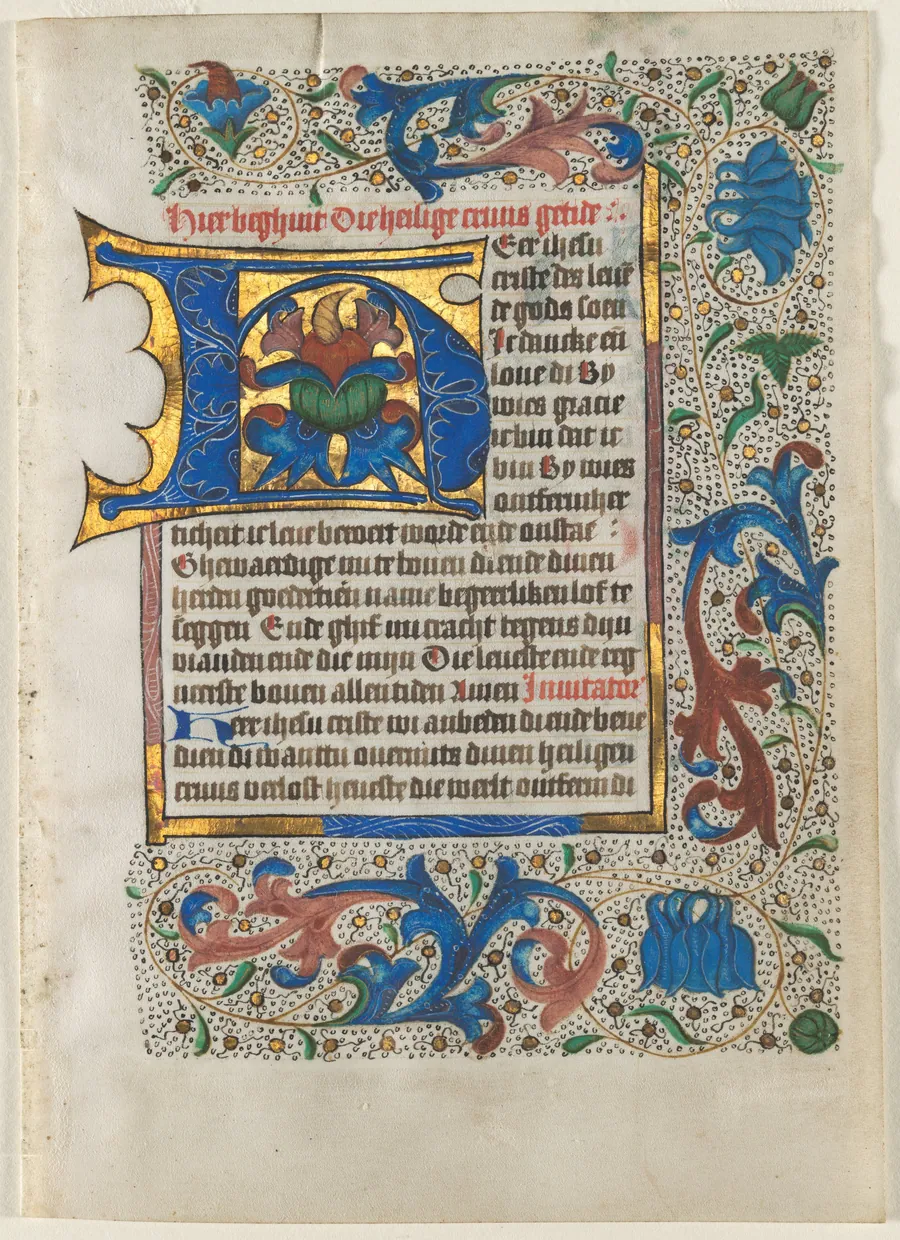 Hier beghint Die heilige cruus getide
H Eer ihesu
criste des leuē
de gods soen
Ic dancke en̄
loue di By
wies gracie
ic bin dat ic
bin By wies
ontfermher
ticheit ic leue beweert worde ende onstae
Ghewaerdige mi te bouen di ende dinen
heiden goedertiērē name begeerliken lof te
seggen Ende ghif mi cracht tegens dijn
vianden ende die mijn Die leueste ende eerst
neerste bouen allen tiden Amen Inuitator
Heer ihesu criste wi anbeden di ende bene
dien di want tu ouermits dinen heiligen
cruus verlost heueste die werlt ontferm di